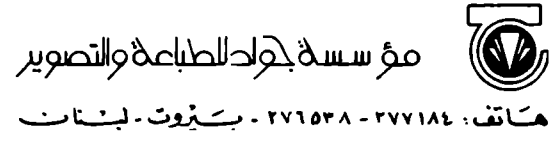 مؤسسة جواد للطباعة والتصوير
هاتف: ٢٧٧١٨٤ - ٢٧٦٥٣٨ - بيروت - لبنان